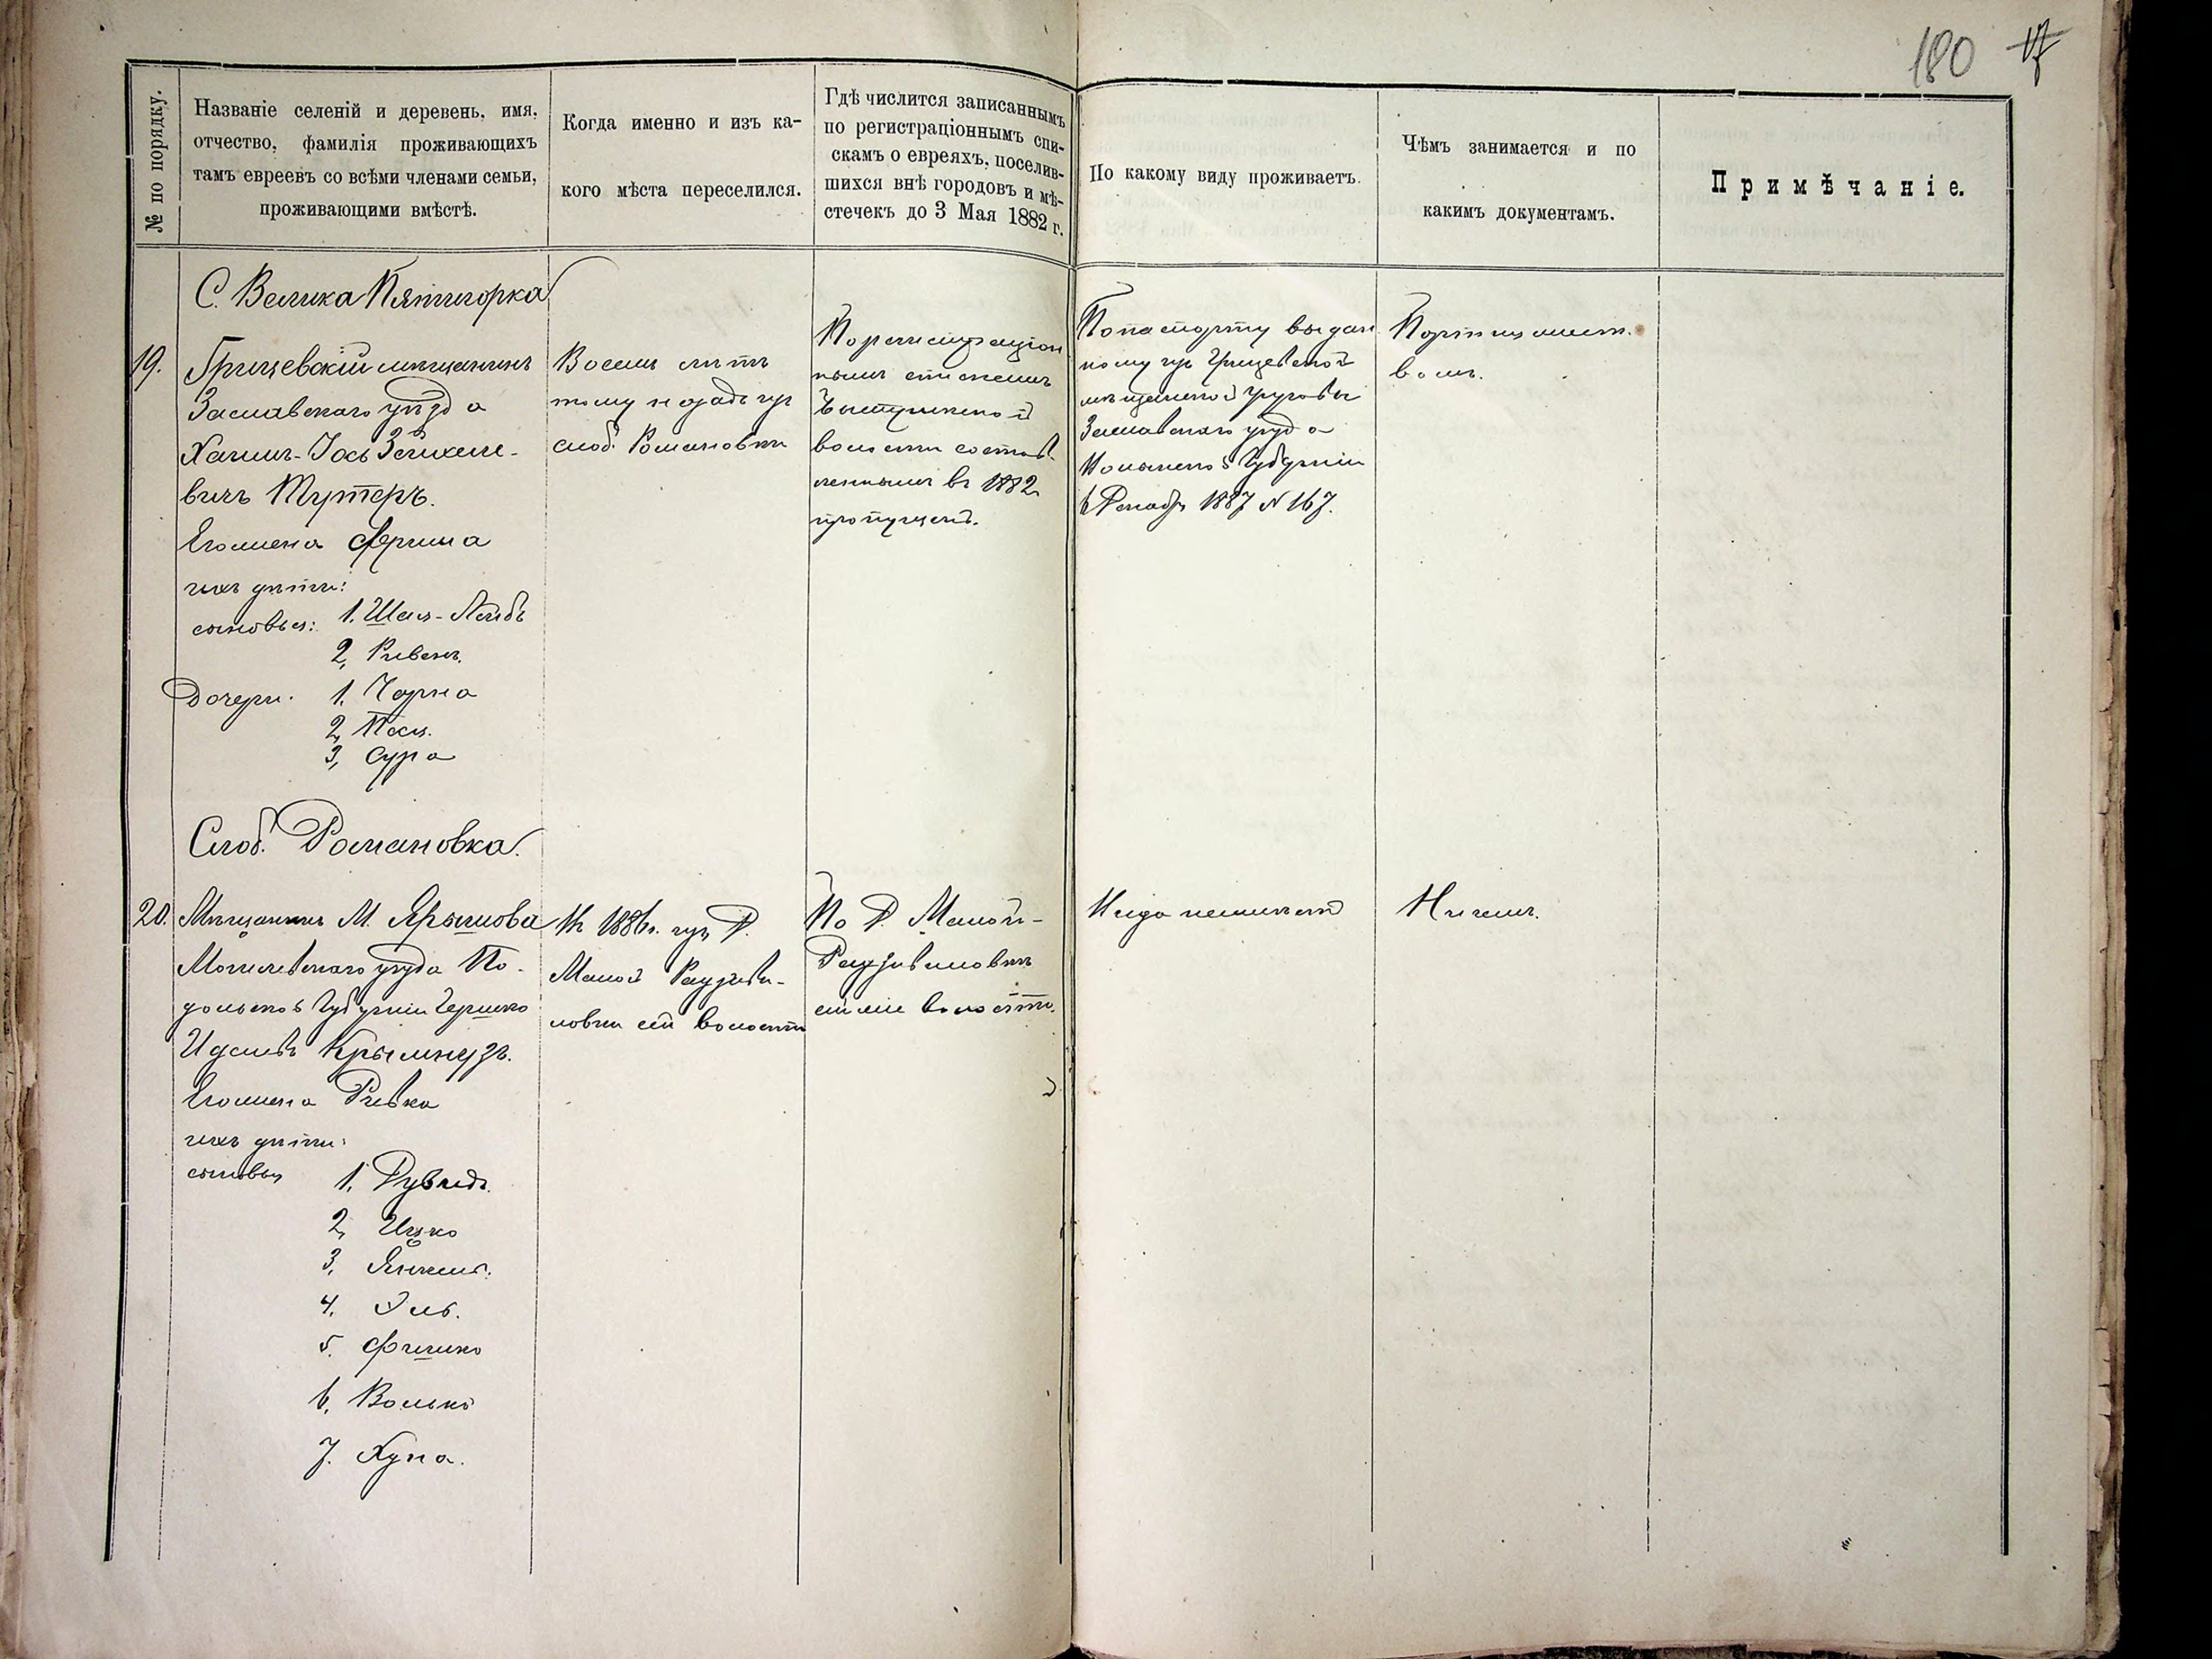 180 17
№ по порядку.
Названіе селеній и деревень, имя,
отчество, фамилія проживающихъ
тамъ евреевъ со всѣми членами семьи,
проживающими вмѣстѣ.
Когда именно и изъ ка-
кого мѣста переселился.
Гдѣ числится записаннымъ
по регистраціоннымъ спи-
скамъ о евреяхъ, поселив-
шихся внѣ городовъ и мѣ-
стечекъ до 3 Мая 1882 г.
По какому виду проживаетъ.
Чѣмъ занимается и по
какимъ документамъ.
Примѣчаніе.
С. Велика Пятигорка
19.
Грицевскій мѣщанинъ
Заславскаго уѣзда
Хаимъ-Іось
вичъ Мутеръ.
Его жена Фрима
ихъ дѣти:
сыновья: 1. Шая-Лейбъ
2, Ривенъ.
Дочери. 1. Чарна
2, Песя.
3, Сура
Восемь лѣтъ
тому назадъ изъ
слоб. Романовки
По регистраціон
нымъ спискамъ
волости состав
леннымъ въ 1882
пропущенъ.
По паспорту выдан
ному изъ Грицевской
мѣщанской управы
Заславскаго уѣзда
Волынской Губерніи
6 Декабря 1887 № 167.
Портняжест.
вомъ.
Слоб. Романовка.
20.
Мѣщанинъ М. Ярышова
Могилевскаго уѣзда По-
дольской Губерніи Гершко
Крымнузъ.
Его жена Ривка
ихъ дѣти:
сыновья 1. Дувидъ.
2, Ицко
3. Янкель.
4. Эль.
5. Фишко
6. Волько
7. Хуна.
Въ 1886 г. изъ Д.
Малой Раузиви-
ловки сей волости
По Д. Малой-
Раузивиловкѣ
сей же волости.
Вида не имѣетъ
Ничемъ.